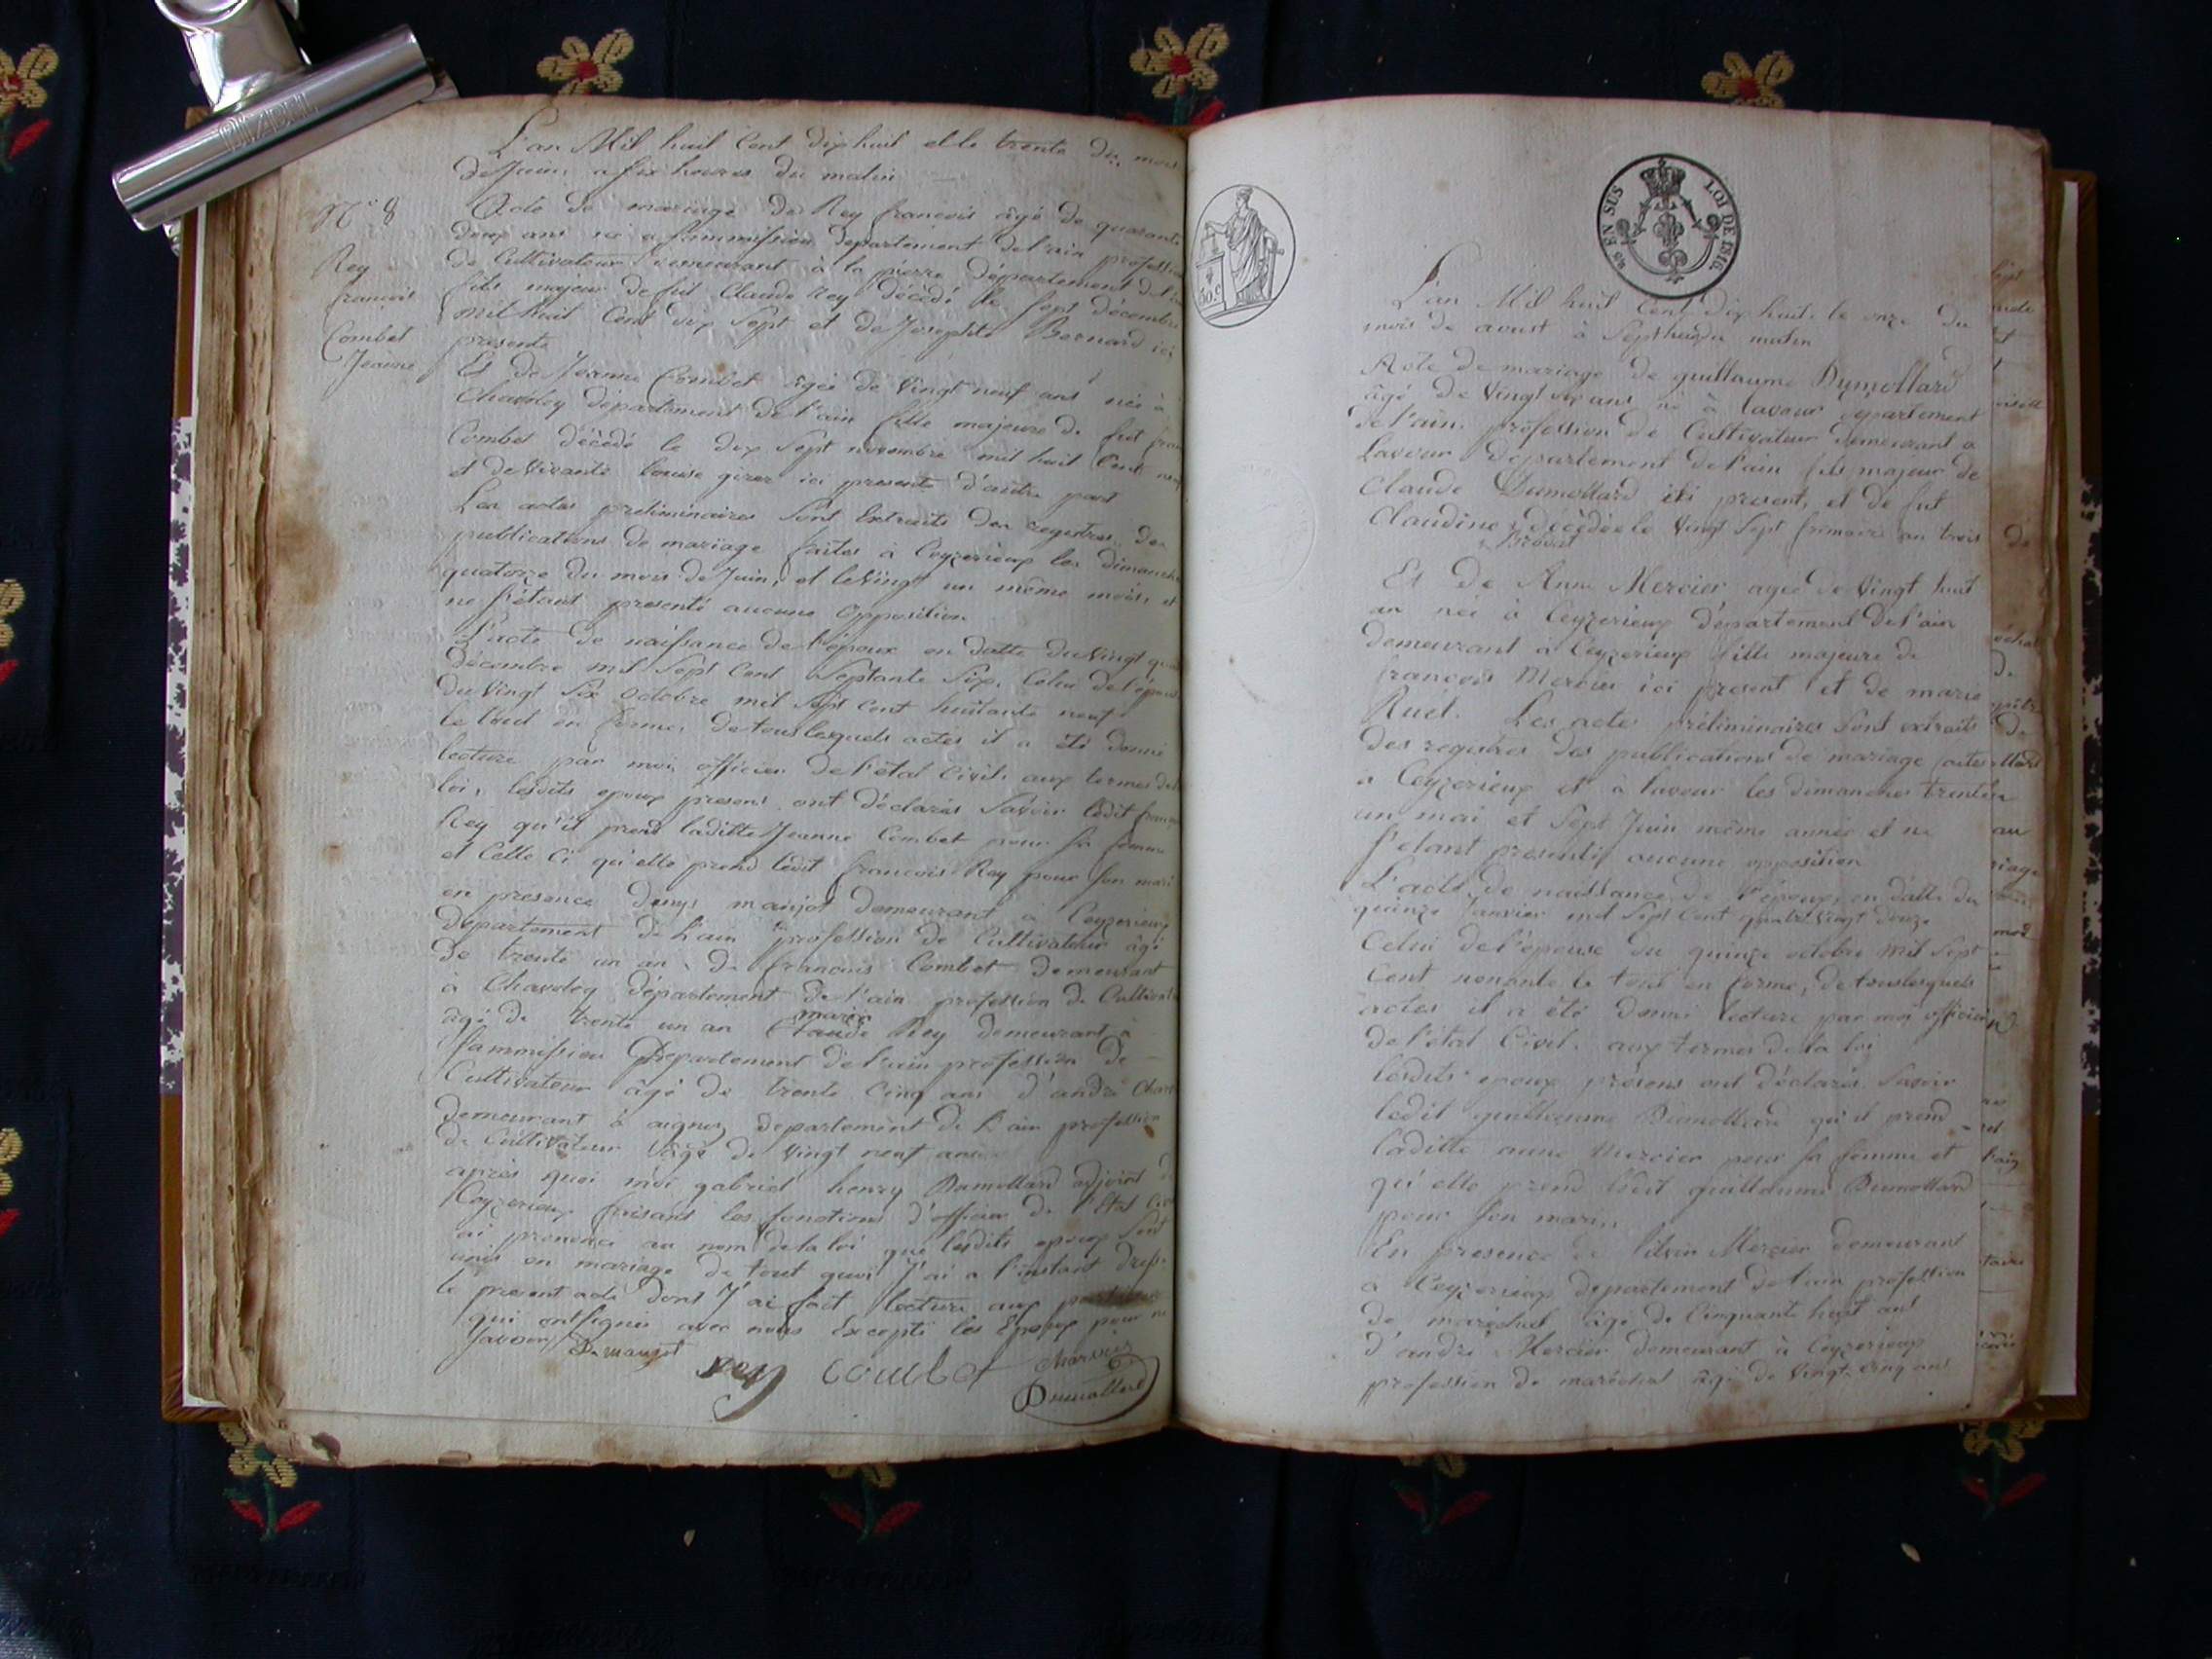 L'an Mil huit Cent dix huit et le trente du mois
de Juin, a six heures du matin
N.° 8
Rey
francois
Combet
Jeanne
Acte de mariage de Rey francois âgé de quarante
deux ans né a département de l'ain profession
de Cultivateur demeurant à la pierre département de l'ain
fils majeur de fut Claude Rey décédé le sept décembre
mil huit Cent dix sept et de Josephte Bernard ici
presente
Et de Jeanne Combet âgée de Vingt neuf ans née à
Chavoley département de l'ain fille majeure de fut
Combet décédé le dix sept novembre mil huit Cent
et de Vivante Louise girer ici presente d'autre part
Les actes préliminaires sont Extraits des registres des
publications de mariage faites à Ceyzerieux les dimanche
quatorze du mois de Juin, et le Vingt un même mois, et
ne s'étant presenté aucune opposition
L'acte de naissance de l'époux en datte du Vingt
décembre mil sept Cent septante six, Celui de l'épouse
du Vingt six octobre mil sept cent huitante neuf
le tout en forme, de tous lesquels actes il a été donné
lecture par moi officier de l'état Civil, aux termes de la
loi, lesdits epoux presens ont déclarés Savoir ledit
Rey qu'il prend laditte Jeanne Combet pour sa femme
et Celle Ci qu'elle prend ledit francois Rey pour son mari
en presence denys manjot demeurant a Ceyzerieux
département de l'ain profession de Cultivateur âgé
de trente un an, de francois Combet demeurant
à Chavoley département de l'ain profession de
âgé de trente un an Rey demeurant à
marin
Département de l'ain profession de
Cultivateur âgé de trente Cinq ans d'andré
demeurant à aignoz departement de l'ain profession
de Cultivateur âgé de Vingt neuf ans
après quoi moi gabriel henry Dumollard adjoint
Ceyzerieux faisant les fonctions d'officier de l'Etat
ai prononcé au nom de la loi que lesdits epoux sont
unis en mariage de tout quoi J'ai a l'instant
le present acte dont J'ai fait lecture aux
qui ont signés avec nous Excepté les Epoux pour ne
savoir D. manjot
rey combet
Dumollard
EN SUS LOI DE 1816.
50 c
L'an Mil huit Cent Dix huit, le onze du
mois de aoust à sept heures du matin
Acte de mariage de guillaume Dumollard
âgé de Vingt six ans né à lavour département
de l'ain, profession de Cultivateur demeurant a
Lavour département de l'ain fils majeur de
Claude Dumollard ici present, et de fut
Claudine décédée le Vingt sept frimaire an trois
Et de Anne Mercier agée de Vingt huit
an née à Ceyzerieux département de l'ain
demeurant à Ceyzerieux fille majeure de
francois Mercier ici present et de marie
Ruet. Les actes préliminaires sont extraits
des registres des publications de mariage faites
a Ceyzerieux et à lavour les dimanches trente
un mai et sept Juin même année et ne
s'etant presentés aucune opposition
L'acte de naissance de l'époux en datte du
quinze Janvier mil sept Cent quatre Vingt douze
Celui de l'épouse du quinze octobre mil sept
Cent nonante le tout en forme, de tous lesquels
actes il a été donné lecture par moi officier
de l'état Civil, aux termes de la loi
lesdits epoux présens ont déclarés savoir
ledit guillaume Dumollard qu'il prend
laditte anne Mercier pour sa femme et
qu'elle prend ledit guillaume Dumollard
pour son mari,
En presence de Mercier demeurant
a Ceyzerieux departement de l'ain profession
de maréchal âgé de Cinquante huit ans
d'andré Mercier demeurant à Ceyzerieux
profession de maréchal âgé de Vingt Cinq ans